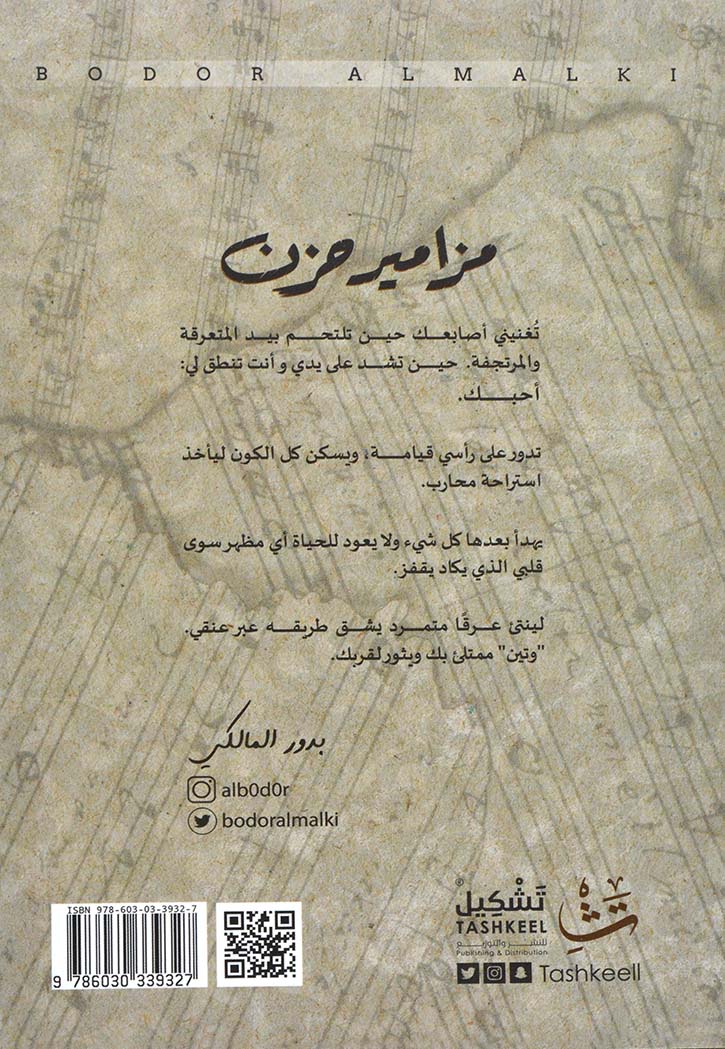 BODOR ALMALKI
مزامير حزن
تُغنيني أصابعك حين تلتحم بيد المتعرقة
والمرتجفة. حين تشد على يدي و أنت تنطق لي:
أحبك.
تدور على رأسي قيامة، ويسكن كل الكون ليأخذ
استراحة محارب.
يهدأ بعدها كل شيء ولا يعود للحياة أي مظهر سوى
قلبي الذي يكاد يقفز.
لينتئ عرقًا متمرد يشق طريقه عبر عنقي.
"وتين" ممتلئ بك ويثور لقربك.
بدور المالكي
alb0d0r
bodoralmalki
ISBN 978-603-03-3932-7
9 786030 339327
تَشْكِيل
TASHKEEL
للنشر والتوزيع
Publishing & Distribution
Tashkeell